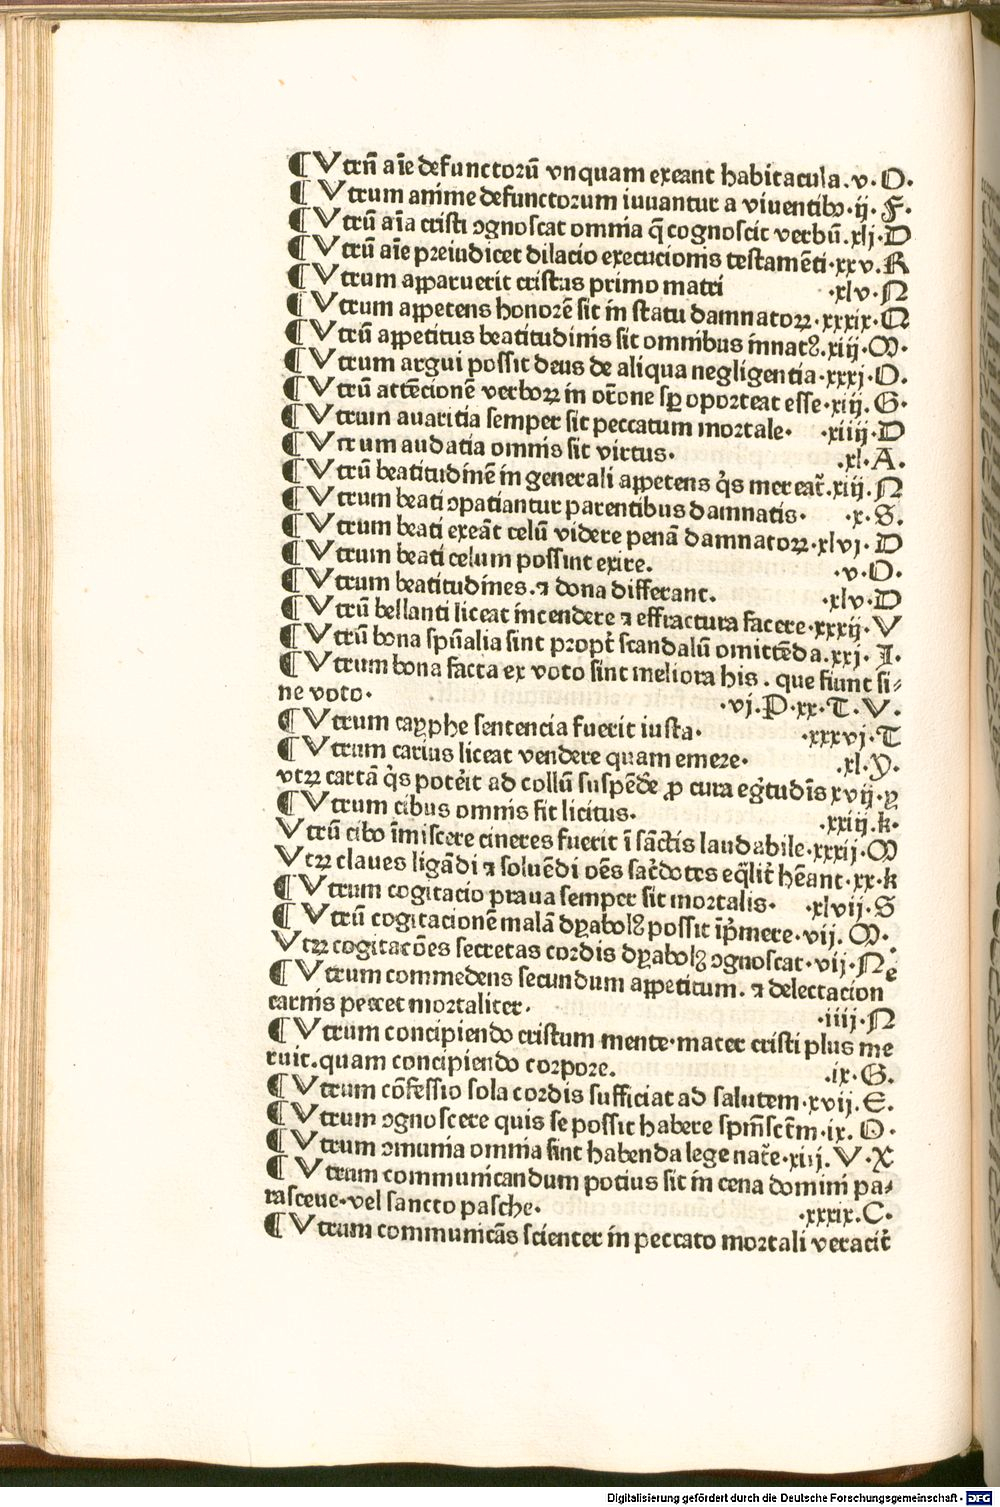 ¶ Vtrū aīe defunctorū vnquam exeant habitacula.v.O.
¶ Vtrum anime defunctorum iuuantur a viuentibꝰ.ij.F.
¶ Vtrū aīa cristi ꝯgnoscat omnia q̄ cognoscit verbū.xlj.D
¶ Vtrū aīe preiudicet dilacio execucionis testamēti.xxv.R
¶ Vtrum apparuerit cristus primo matri .xlv.N
¶ Vtrum appetens honorē sit in statu damnatoꝝ.xxxix.Q
¶ Vtrū appetitus beatitudinis sit omnibus innatꝰ.xiij.M.
¶ Vtrum argui possit deus de aliqua negligentia.xxxj.O.
¶ Vtrū attēcionē verboꝝ in or̄one sꝑ oporteat esse.xiij.G.
¶ Vtrum auaritia semper sit peccatum mortale. .xiiij.D
¶ Vtrum audatia omnis sit virtus. .xl.A.
¶ Vtrū beatitudinē in generali appetens q̇s mereat̄.xiij.N
¶ Vtrum beati ꝯpatiantur parentibus damnatis. .x.S.
¶ Vtrum beati exeāt celū videre penā damnatoꝝ.xlvj.D
¶ Vtrum beati celum possint exire. .v.O.
¶ Vtrum beatitudines.⁊ dona differant. .xlv.D
¶ Vtrū bellanti liceat incendere ⁊ effractura facere.xxxij.V
¶ Vtrū bona spūalia sint propt̄ scandalū omittēda.xxj.I.
¶ Vtrum bona facta ex voto sint meliora his.que fiunt si⸗
ne voto. .vj.P.xx.T.V.
¶ Vtrum cayphe sentencia fuerit iusta. .xxxvj.T
¶ Vtrum carius liceat vendere quam emere. .xl.Y.
vtꝝ cartā q̇s poteīt ad collū suspēdē ꝓ cura egr̄tudīs xvij.y
¶ Vtrum cibus omnis fit licitus. .xxiij.k.
Vtrū cibo īmiscere cineres fuerit ī sāctis laudabile.xxxij.M
Vtꝝ claues ligādi ⁊ soluēdi oēs sac̄dotes eq̄lit̄ hēant.xx.k
¶ Vtrum cogitacio praua semper sit mortalis. .xlvij.S
¶ Vtrū cogitacionē malā dyabolꝰ possit īp̄mere.vij.M.
Vtꝝ cogitacōes secretas cordis dyabolꝰ ꝯgnoscat.vij.Ne
¶ Vtrum commedens secundum appetitum.⁊ delectacion
carnis peccet mortaliter. .iiij.N
¶ Vtrum concipiendo cristum mente.mater cristi plus me
ruit.quam concipiendo corpore. .ix.G.
¶ Vtrum cōfessio sola cordis sufficiat ad salutem.xvij.E.
¶ Vtrum ꝯgnoscere quis se possit habere spm̄sctm̄.ix.O.
¶ Vtrum ꝯmunia omnia sint habenda lege nat̄e.xiij.V.X
¶ Vtrum communicandum potius sit in cena domini pa⸗
rasceue.vel sancto pasche. .xxxix.C.
¶ Vtrum communicās scienter in peccato mortali veracit̄
Digitalisierung gefördert durch die Deutsche Forschungsgemeinschaft - DFG